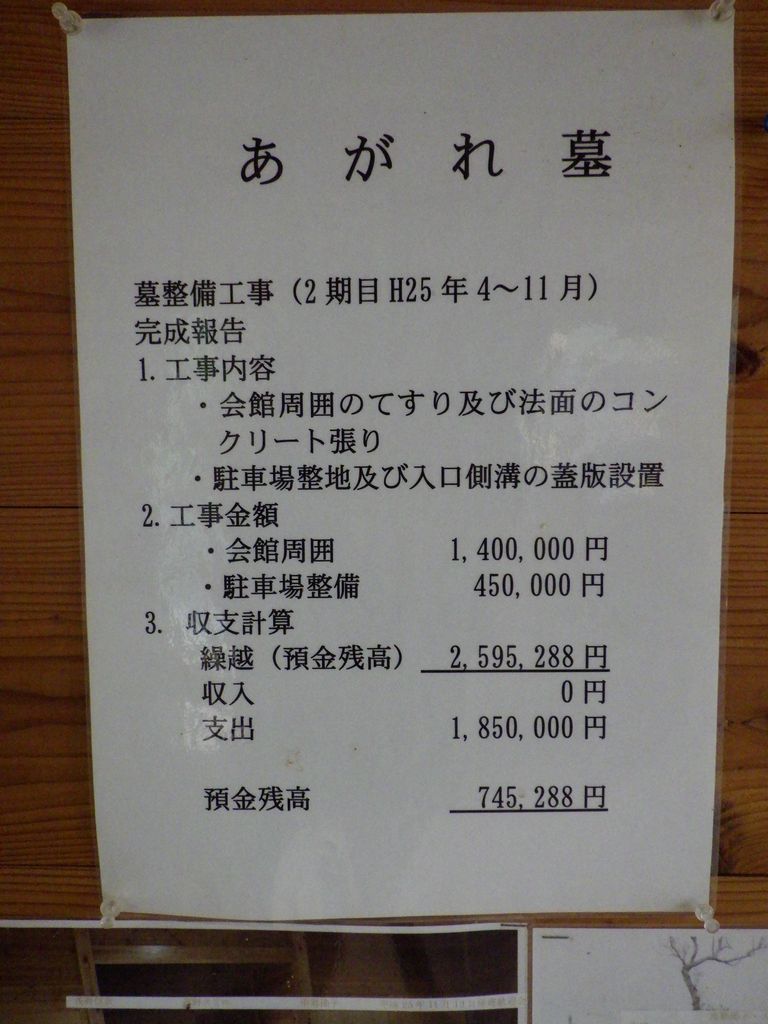 あがれ墓
墓整備工事（2期目H25年4～11月）
完成報告
1. 工事内容
・会館周囲のてすり及び法面のコン
クリート張り
・駐車場整地及び入口側溝の蓋版設置
2. 工事金額
・会館周囲 1,400,000円
・駐車場整備 450,000円
3. 収支計算
繰越（預金残高） 2,595,288円
収入 0円
支出 1,850,000円
預金残高 745,288円